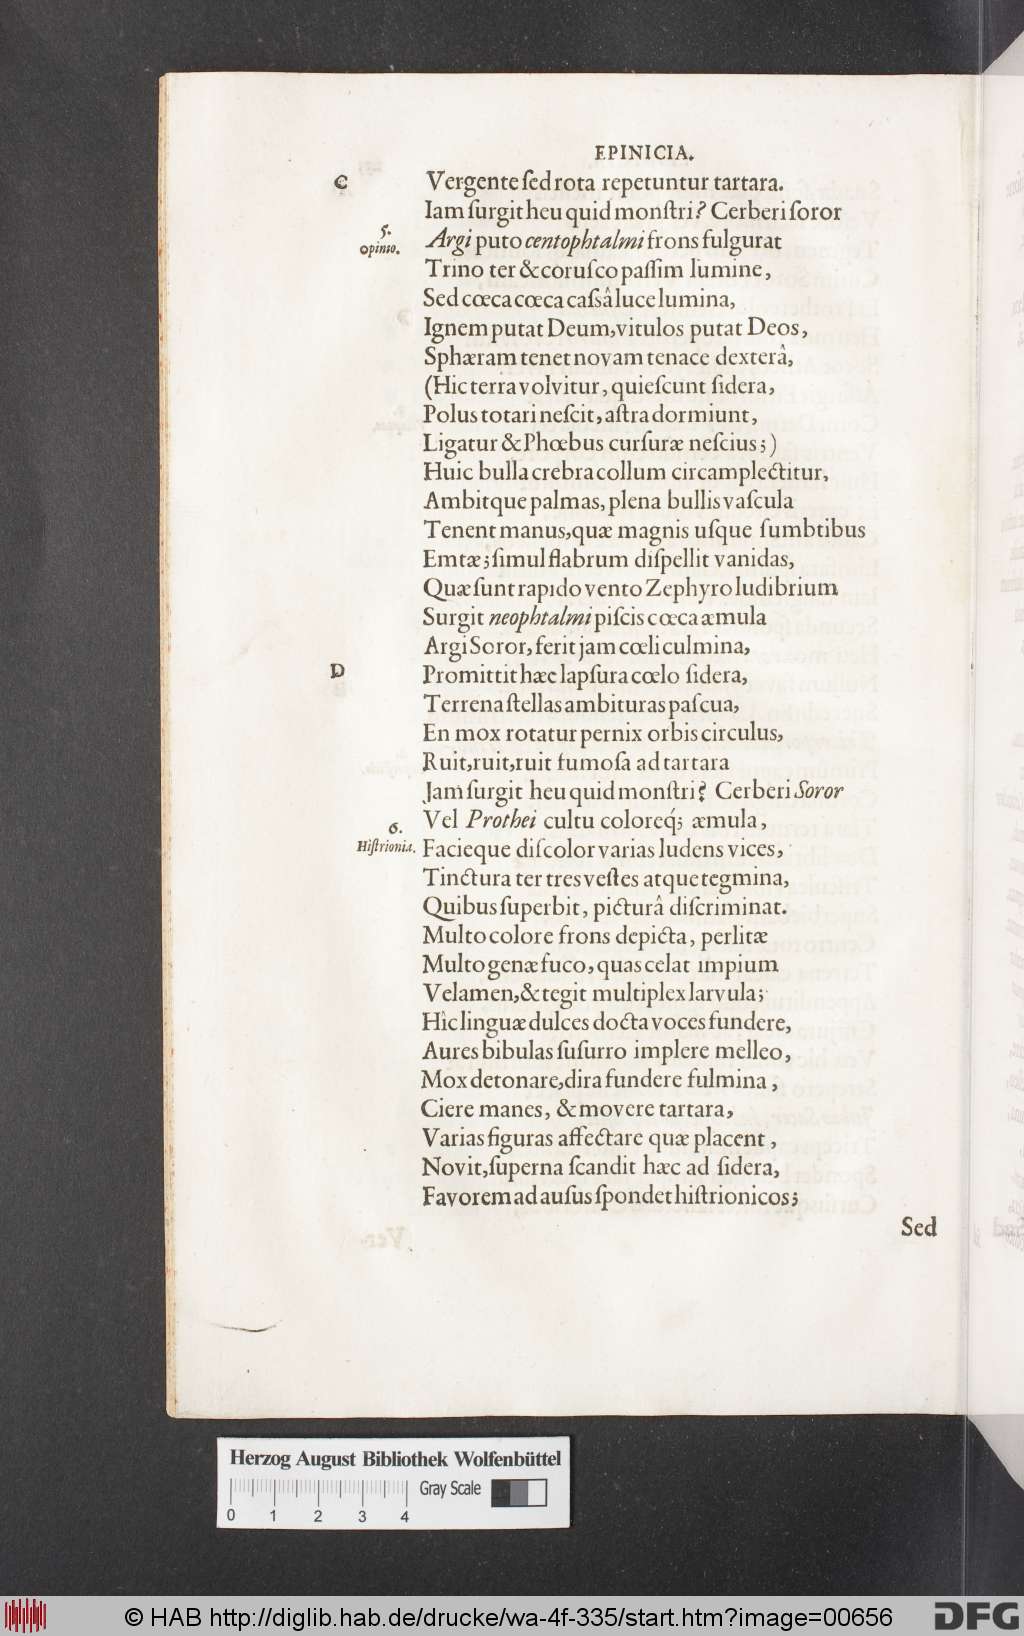 EPINICIA.
C
Vergente ſed rota repetuntur tartara.
Iam ſurgit heu quid monſtri? Cerberi ſoror
5.
Opinio.
Argi puto centophtalmi frons fulgurat
Trino ter & coruſco paſſim lumine,
Sed cœca cœca caſsâ luce lumina,
Ignem putat Deum, vitulos putat Deos,
Sphæram tenet novam tenace dexterâ,
(Hic terra volvitur, quieſcunt ſidera,
Polus totari neſcit, aſtra dormiunt,
Ligatur & Phœbus curſuræ neſcius;)
Huic bulla crebra collum circamplectitur,
Ambitque palmas, plena bullis vaſcula
Tenent manus, quæ magnis uſque ſumbtibus
Emtæ; ſimul flabrum diſpellit vanidas,
Quæ ſunt rapido vento Zephyro ludibrium
Surgit neophtalmi piſcis cœca æmula
Argi Soror, ferit jam cœli culmina,
D
Promittit hæc lapſura cœlo ſidera,
Terrena ſtellas ambituras paſcua,
En mox rotatur pernix orbis circulus,
Ruit, ruit, ruit fumoſa ad tartara
Jam ſurgit heu quid monſtri? Cerberi Soror
Vel Prothei cultu coloreq́; æmula,
6.
Hiſtrionia.
Facieque diſcolor varias ludens vices,
Tinctura ter tres veſtes atque tegmina,
Quibus ſuperbit, picturâ diſcriminat.
Multo colore frons depicta, perlitæ
Multo genæ fuco, quas celat impium
Velamen, & tegit multiplex larvula;
Hîc linguæ dulces docta voces fundere,
Aures bibulas ſuſurro implere melleo,
Mox detonare, dira fundere fulmina,
Ciere manes, & movere tartara,
Varias figuras affectare quæ placent,
Novit, ſuperna ſcandit hæc ad ſidera,
Favorem ad auſus ſpondet hiſtrionicos;
Sed
Herzog August Bibliothek Wolfenbüttel
Gray Scale
0 1 2 3 4
© HAB http://diglib.hab.de/drucke/wa-4f-335/start.htm?image=00656
DFG